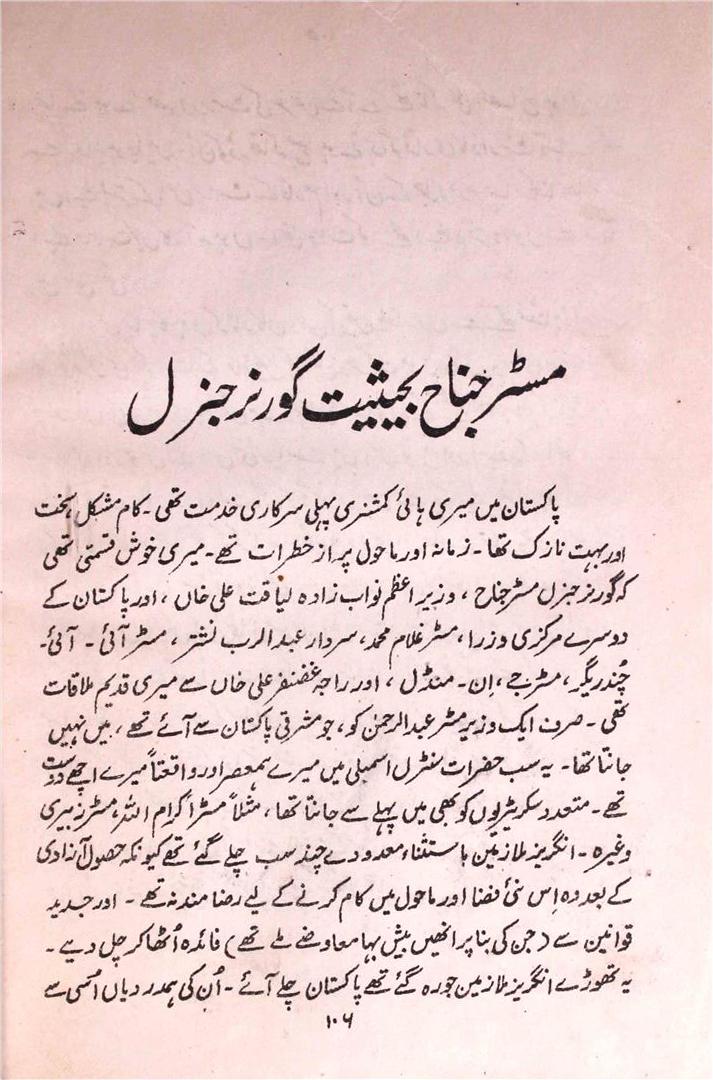 مسٹر جناح بحیثیت گورنر جنرل
پاکستان میں میری ہائی کمشنری پہلی سرکاری خدمت تھی۔ کام مشکل، سخت
اور بہت نازک تھا۔ زمانہ اور ماحول پُر از خطرات تھے۔ میری خوش قسمتی تھی
کہ گورنر جنرل مسٹر جناح، وزیر اعظم نواب زادہ لیاقت علی خاں، اور پاکستان کے
دوسرے مرکزی وزرا، مسٹر غلام محمد، سردار عبدالرب نشتر، مسٹر آئی۔ آئی۔
چُندریگر، مسٹر جے، اِن۔ منڈل، اور راجہ غضنفر علی خاں سے میری قدیم ملاقات
تھی۔ صرف ایک وزیر مسٹر عبدالرحمٰن کو، جو مشرقی پاکستان سے آئے تھے، میں نہیں
جانتا تھا۔ یہ سب حضرات سنٹرل اسمبلی میں میرے ہمعصر اور واقعتاً میرے اچھے دوست
تھے۔ متعدد سکریٹریوں کو بھی میں پہلے سے جانتا تھا، مثلاً مسٹر اکرام اللہ، مسٹر زبیری
وغیرہ۔ انگریز ملازمین باستثناء معدودے چند سب چلے گئے تھے کیونکہ حصول آزادی
کے بعد وہ اِس نئی فضا اور ماحول میں کام کرنے کے لیے رضا مند نہ تھے۔ اور جدید
قوانین سے (جن کی بنا پر انھیں بیش بہا معاوضے ملے تھے) فائدہ اُٹھا کر چل دیے۔
یہ تھوڑے انگریز ملازمین جو رہ گئے تھے پاکستان چلے آئے۔ اُن کی ہمدردیاں اُسی سے
۱۰۶